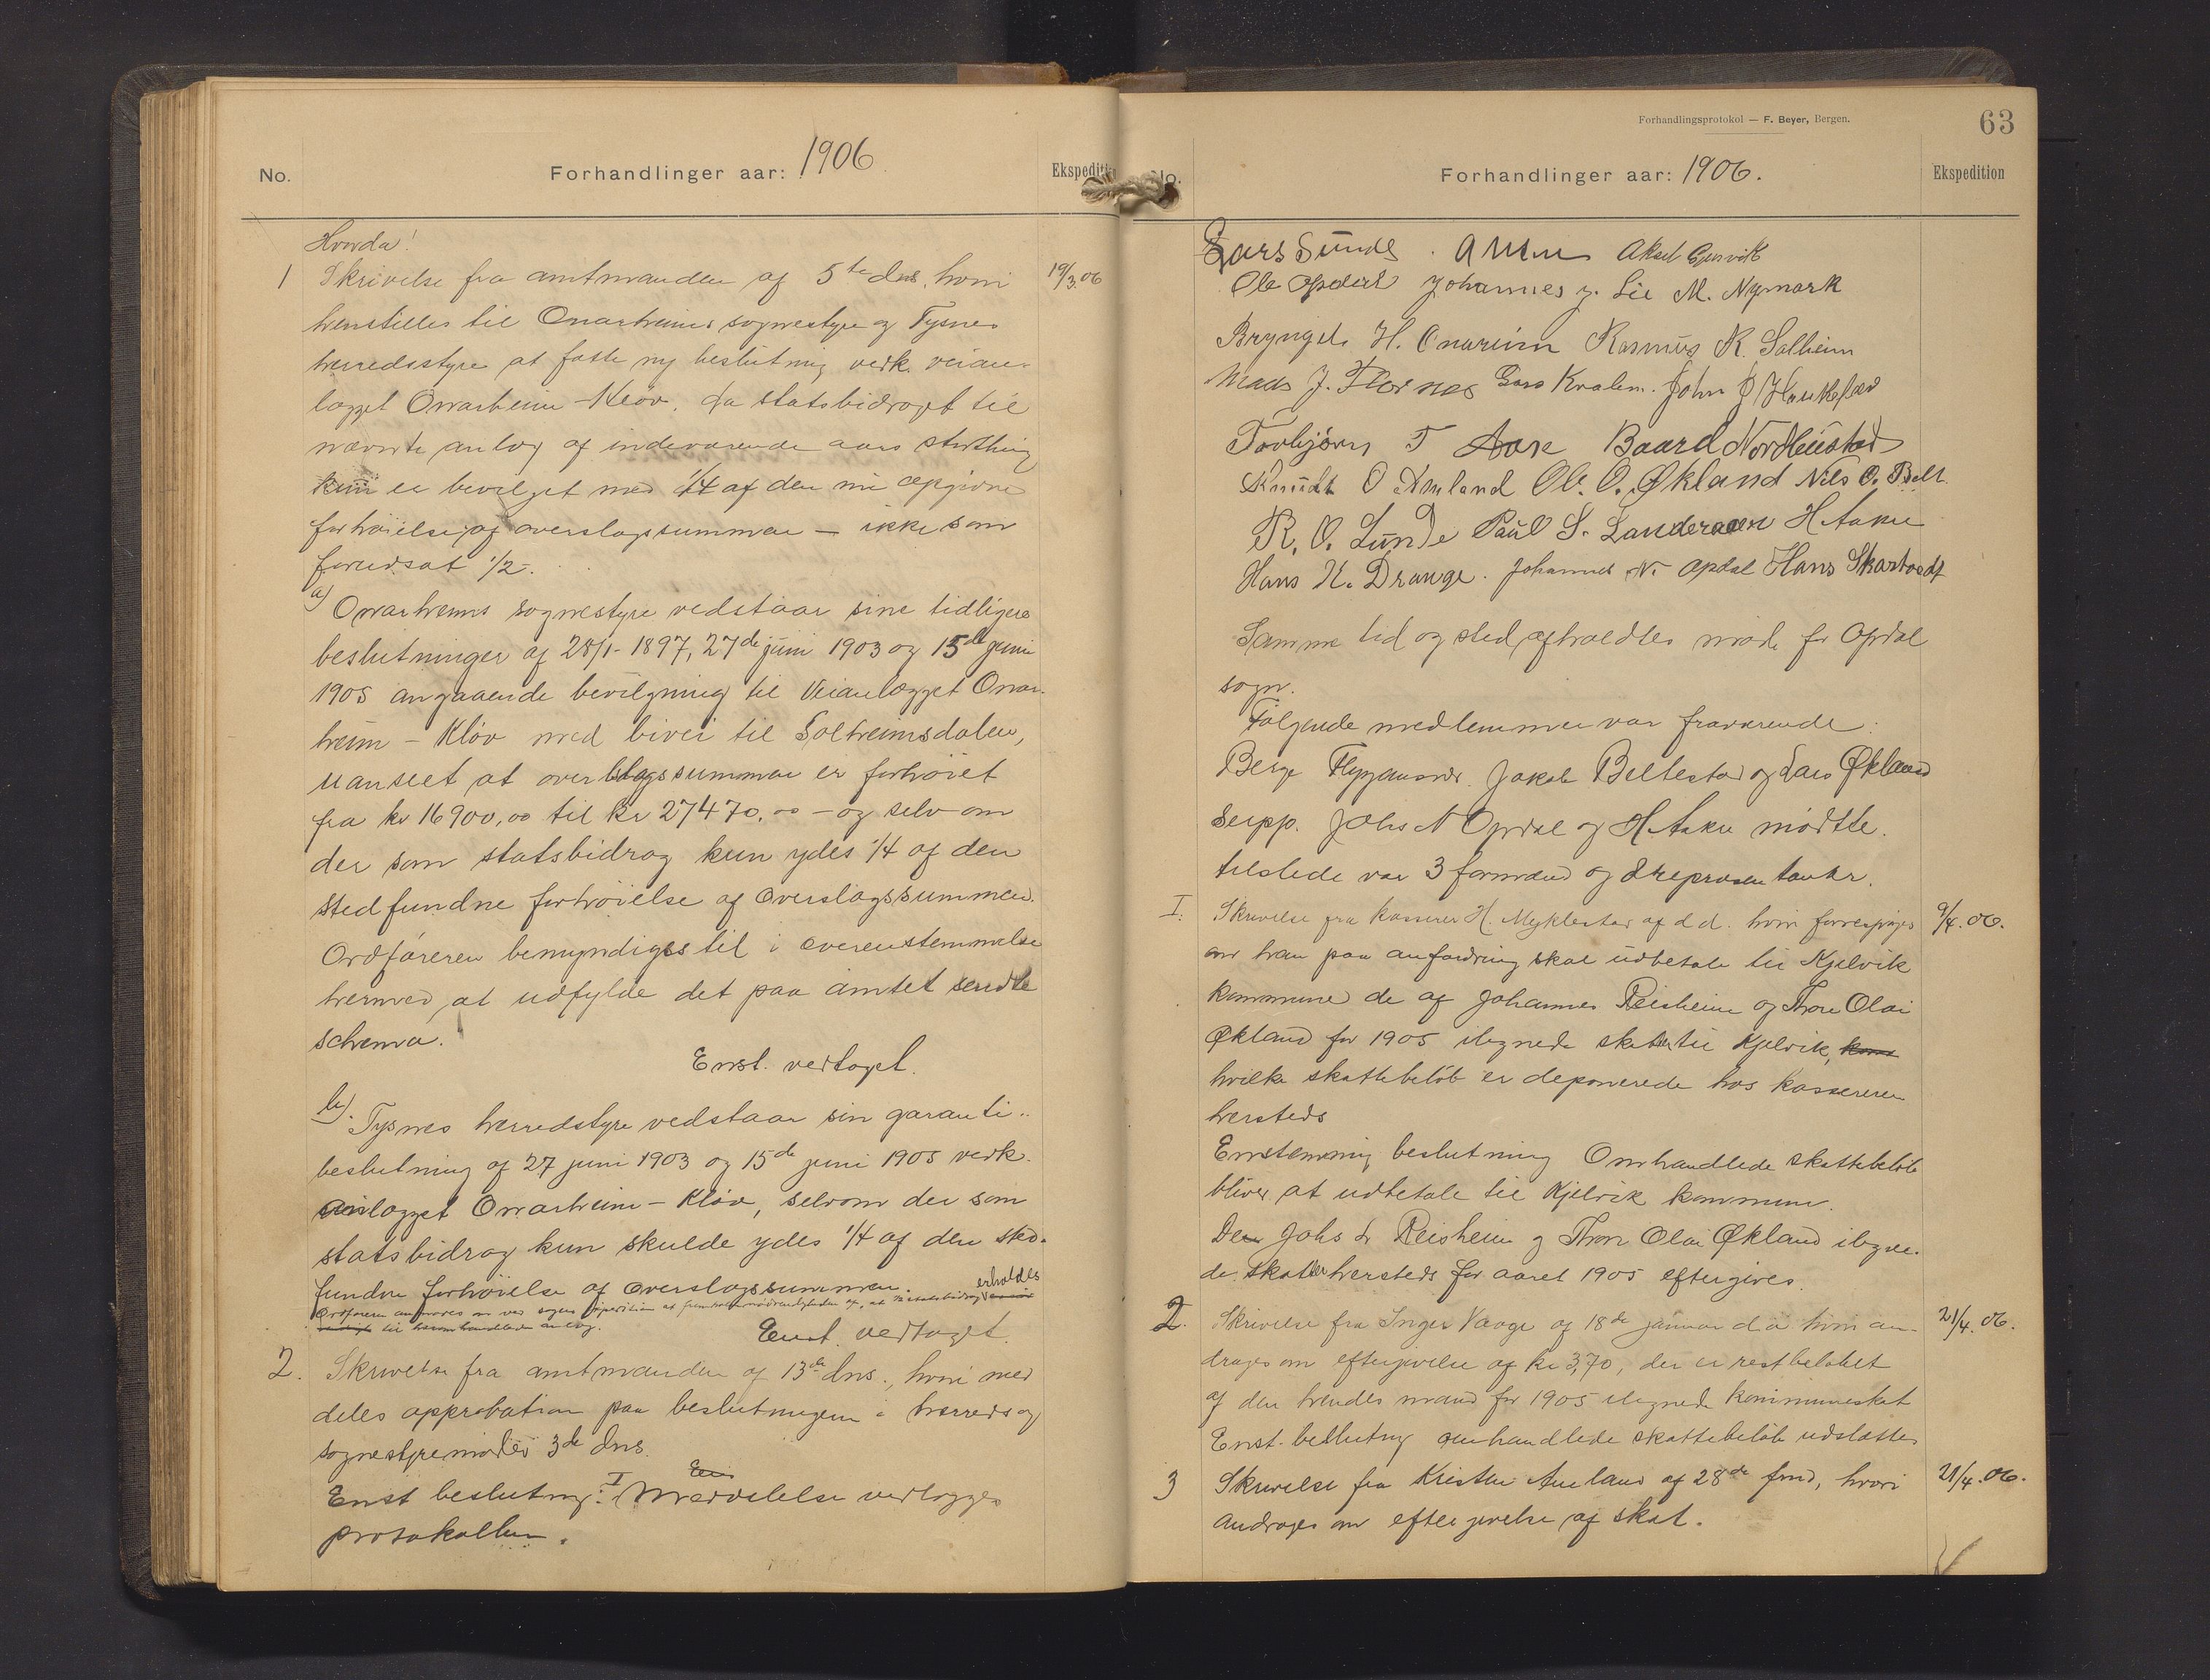 No.
Forhandlinger aar: 1906
Ekspediti
Hvorda!
1 Skrivelse fra amtmanden af 5te dns. hvori 19/3.06
henstilles til Onarheims sognestyre og Tysnes
herredsstyre at fatte ny beslutning vedk. veian-
lægget Onarheim - Kløv, da statsbidraget til
nævnte anlæg af indeværende aars storthing
kun er bevilget med 1/4 af den nu opgivne
forhøielse af overslagssummen — ikke som
forudsat 1/2.
a) Onarheims sognestyre vedstaar sine tidligere
beslutninger af 28/1- 1897, 27de juni 1903 og 15de juni
1905 angaaende bevilgning til Veianlægget Onar-
heim - Kløv med bivei til Solheimsdalen,
uanseet at overslagssummen er forhøiet
fra kr 16900,00 til kr 27470,00 - og selv om
der som statsbidrag kun ydes 1/4 af den
stedfundne forhøielse af overslagssummen.
Ordføreren bemyndiges til i overensstemmelse
hermed at udfylde det paa amtet sendte
schema.
Enst. vedtaget.
b). Tysnes herredstyre vedstaar sin garanti-
beslutning af 27 juni 1903 og 15de juni 1905 vedk.
anlægget Onarheim - Kløv, selvom der som
statsbidrag kun skulde ydes 1/4 af den sted-
fundne forhøielse af overslagssummen. erholdes
Ordføreren anmodes om ved sagens at af, at 1/2 statsbidrag
til heromhandlede anlæg.
Enst. vedtaget.
2. Skrivelse fra amtmanden af 13de dns., hvori med
deles approbation paa beslutningen i herreds og
sognestyremøder 3de dns.
Enst beslutning: I Meddelelse vedlægges
protokollen.
Forhandlingsprotokol — F. Beyer, Bergen.
63
No.
Forhandlinger aar: 1906.
Ekspedition
Lars Sunde. Aksel Gjersvik
Ole Opdal Johannes J. Lie M. Nymark
Bryngel H. Onarheim Rasmus K. Solheim
Mads J. Flornes Lars Kvalem. John J Haukefær
Torbjørn T Aase Baard Nordheustad
Knudt O Amland Ol. O. Økland Nils O. Belt
R. O. Lunde Paul S. Landeraaen H Aaku
Hans H. Drange. Johannes N. Opdal Hans Skartvedt
Samme tid og sted afholdtes møde for Opdal
sogn.
Følgende medlemmer var fraværende:
Berge Flygansvær. Jakob Beltestad og Lars Økland
Supp. Johs N Opdal og H Aaku mødtte.
tilstede var 3 formænd og 8 repræsentanter.
I. Skrivelse fra kasserer H. Myklestad af d d. hvori forespørges 9/4.06.
om han paa anfordring skal udbetale til Kjelvik
kommune de af Johannes Reisheim og Thore Olai
Økland for 1905 ilignede skatter til Kjelvik,
hvilke skattebeløb er deponerede hos kassereren
hersteds
Enstemmig beslutning Omhandlede skattebeløb
bliver at udbetale til Kjelvik kommune.
Den Johs L Reisheim og Thore Olai Økland iligne-
de skatter hersteds for aaret 1905 eftergives.
2. Skrivelse fra Inger Vaage af 18de januar d a hvori an- 21/4.06.
drages om eftergivelse af kr 3,70, der er restbeløbet
af den hendes mand for 1905 ilignede kommuneskat
Enst. beslutning omhandlede skattebeløb udslættes
3 Skrivelse fra Kristen Amland af 28de fmd, hvori 21/4.06.
andrages om eftergivelse af skat.